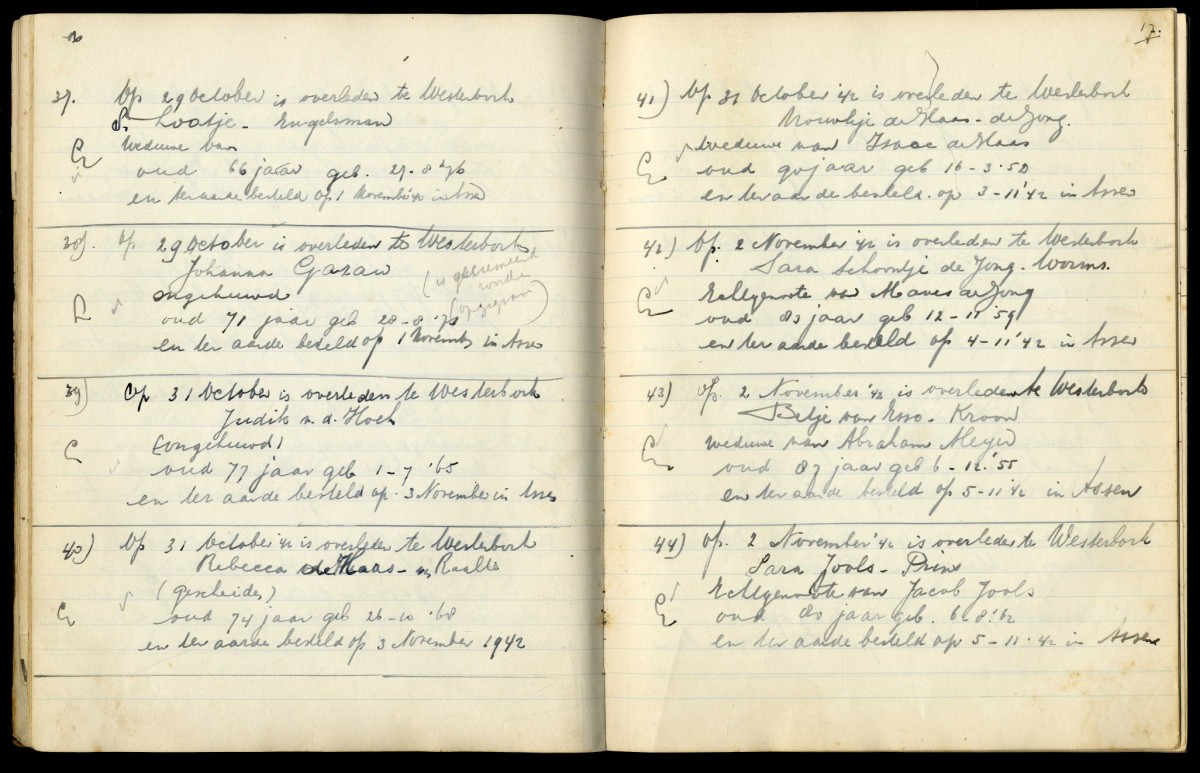 37. Op 29 October is overleden te Westerbork
Lootje - Engelsman
Weduwe van
oud 66 jaar geb. 29-8 '76
en ter aarde besteld op 1 November '42 in Assen
38). Op 29 October is overleden te Westerbork
Johanna
(is gecremeerd
worden
ongehuwd
oud 71 jaar geb 28-8-'71
en ter aarde besteld op 1 November in Assen
39) Op 31 October is overleden te Westerbork
Judik v. d. Hoek
(ongehuwd)
oud 77 jaar geb 1-7-'65
en ter aarde besteld op 3 November in Assen
40) Op 31 October '42 is overleden te Westerbork
Rebecca de Haas - v. Raalte
(gescheiden)
oud 74 jaar geb 26-10-'68
en ter aarde besteld op 3 November 1942
17.
41) Op 31 October '42 is overleden te Westerbork
Vrouwtje de Haas - de Jong.
weduwe van Isaac de Haas
oud 90 jaar geb 16-3-52
en ter aarde besteld op 3-11'42 in Assen
42) Op. 2 November '42 is overleden te Westerbork
Sara Schoontje de Jong - Worms.
Echtgenoote van Manes de Jong
oud 83 jaar geb 12-11'59
en ter aarde besteld op 4-11'42 in Assen
43) Op. 2 November '42 is overleden te Westerbork
Betje van Esso - Kroon
weduwe van Abraham Meyer
oud 87 jaar geb 6-12-'55
en ter aarde besteld op 5-11'42 in Assen
44) Op. 2 November '42 is overleden te Westerbork
Sara Jools - Prins
Echtgenoote van Jacob Jools
oud 80 jaar geb. 6-8-'62
en ter aarde besteld op 5-11-'42 in Assen